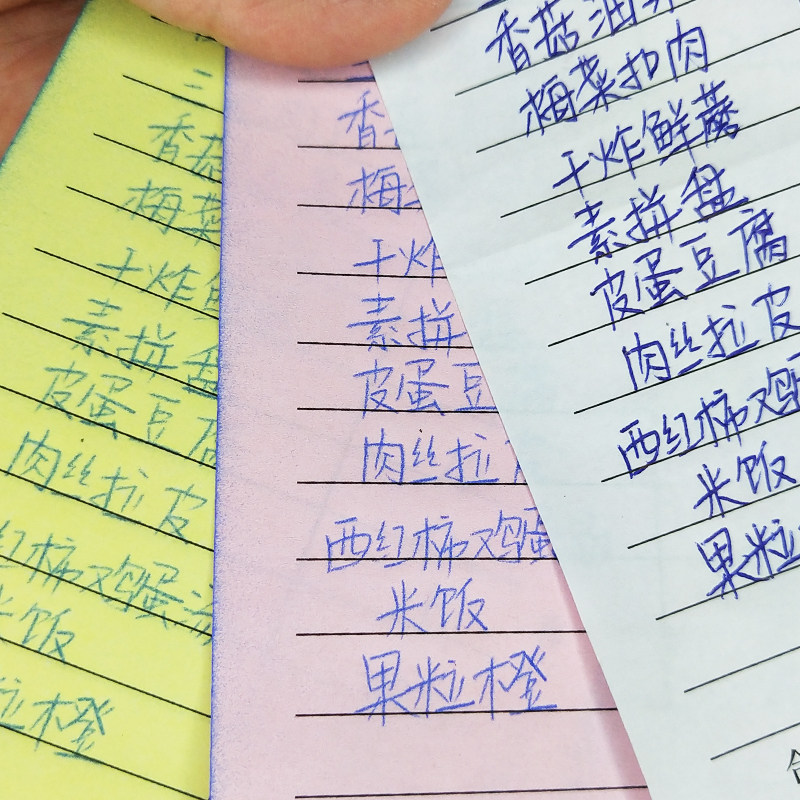 三
香菇
梅菜
干炸鲜
素拼盘
皮蛋豆腐
肉丝拉皮
红柿鸡蛋汤
米饭
粒橙
香
梅
干炸
素拼
皮蛋豆
肉丝拉
西红柿鸡蛋
米饭
果粒橙
香菇油菜
梅菜扣肉
干炸鲜蘑
素拼盘
皮蛋豆腐
肉丝拉皮
西红柿鸡蛋
米饭
果粒